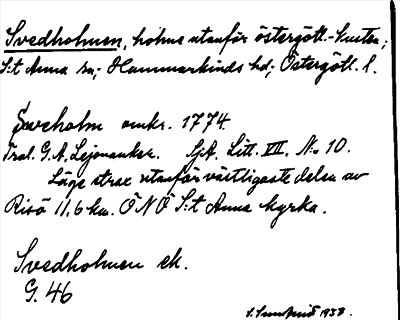 Svedholmen, holme utanför östergötl.-kusten;
S:t Anna sn; Hammarkinds hd; Östergötl. l.
Sveholm omkr. 1774.
Trol. G. A. Lejonanker. SjA. Litt. VII. N:o 10.
Läge strax utanför västligaste delen av
Risö 11,6 km. ÖNÖ S:t Anna kyrka.
Svedholmen ek.
G. 46
1938.